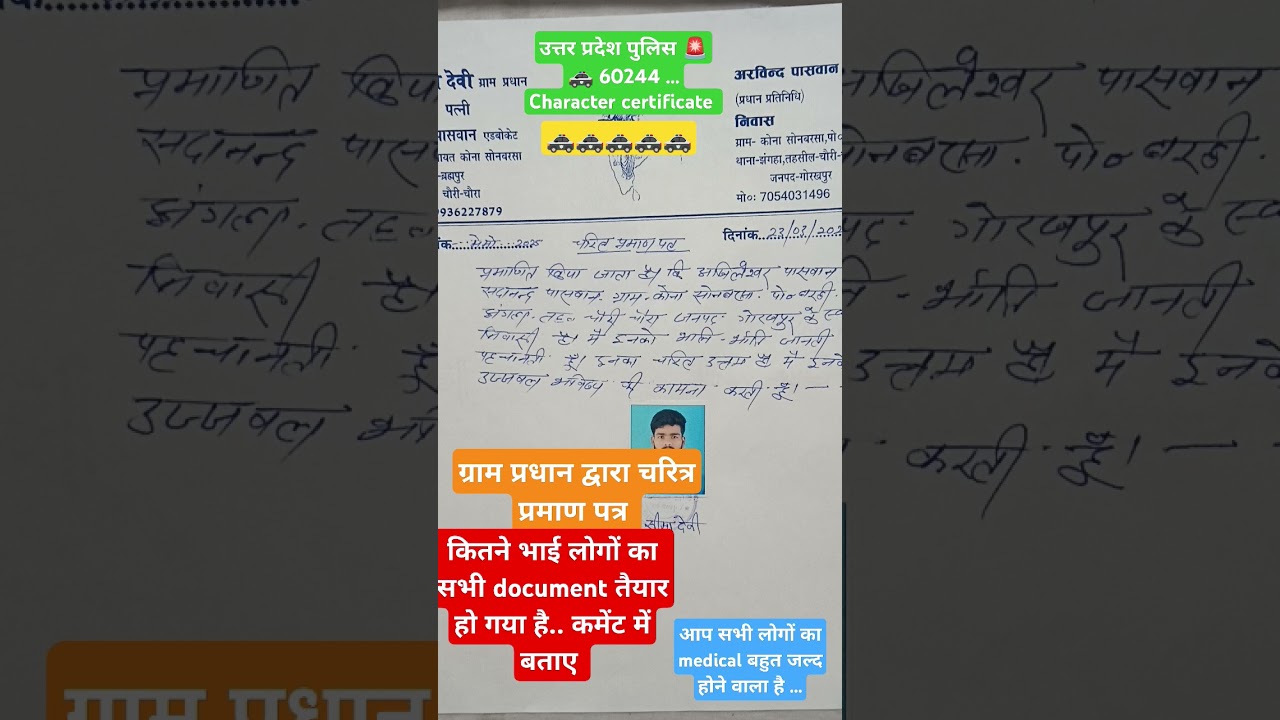 उत्तर प्रदेश पुलिस 🚨
🚓 60244 ...
Character certificate
🚓🚓🚓🚓🚓
देवी ग्राम प्रधान
पत्नी
पासवान एडवोकेट
यत कोना सोनबरसा
-ब्रह्मपुर
चौरी-चौरा
9936227879
अरविन्द पासवान
(प्रधान प्रतिनिधि)
निवास
ग्राम- कोना सोनबरसा,पो०
थाना-झंगहा,तहसील-चौरी-
जनपद-गोरखपुर
मो०: 7054031496
दिनांक..23/03/202
चरित्र प्रमाण पत्र
प्रमाणित किया जाता है। कि अजिलेश्वर पासवान
सदानन्द पासवान. ग्राम-कोना सोनबरसा. पो० बरही.
झंगहा. तह० चौरी चौरा जनपद गोरखपुर के
निवासी है। मै इनको भाति-भाति जानती
पहचानती हूँ। इनका चरित्र उत्तम है मै इनके
उज्जवल भविष्य की कामना करती हूँ। —
सीमा देवी
ग्राम प्रधान द्वारा चरित्र
प्रमाण पत्र
कितने भाई लोगों का
सभी document तैयार
हो गया है.. कमेंट में
बताए
आप सभी लोगों का
medical बहुत जल्द
होने वाला है ...